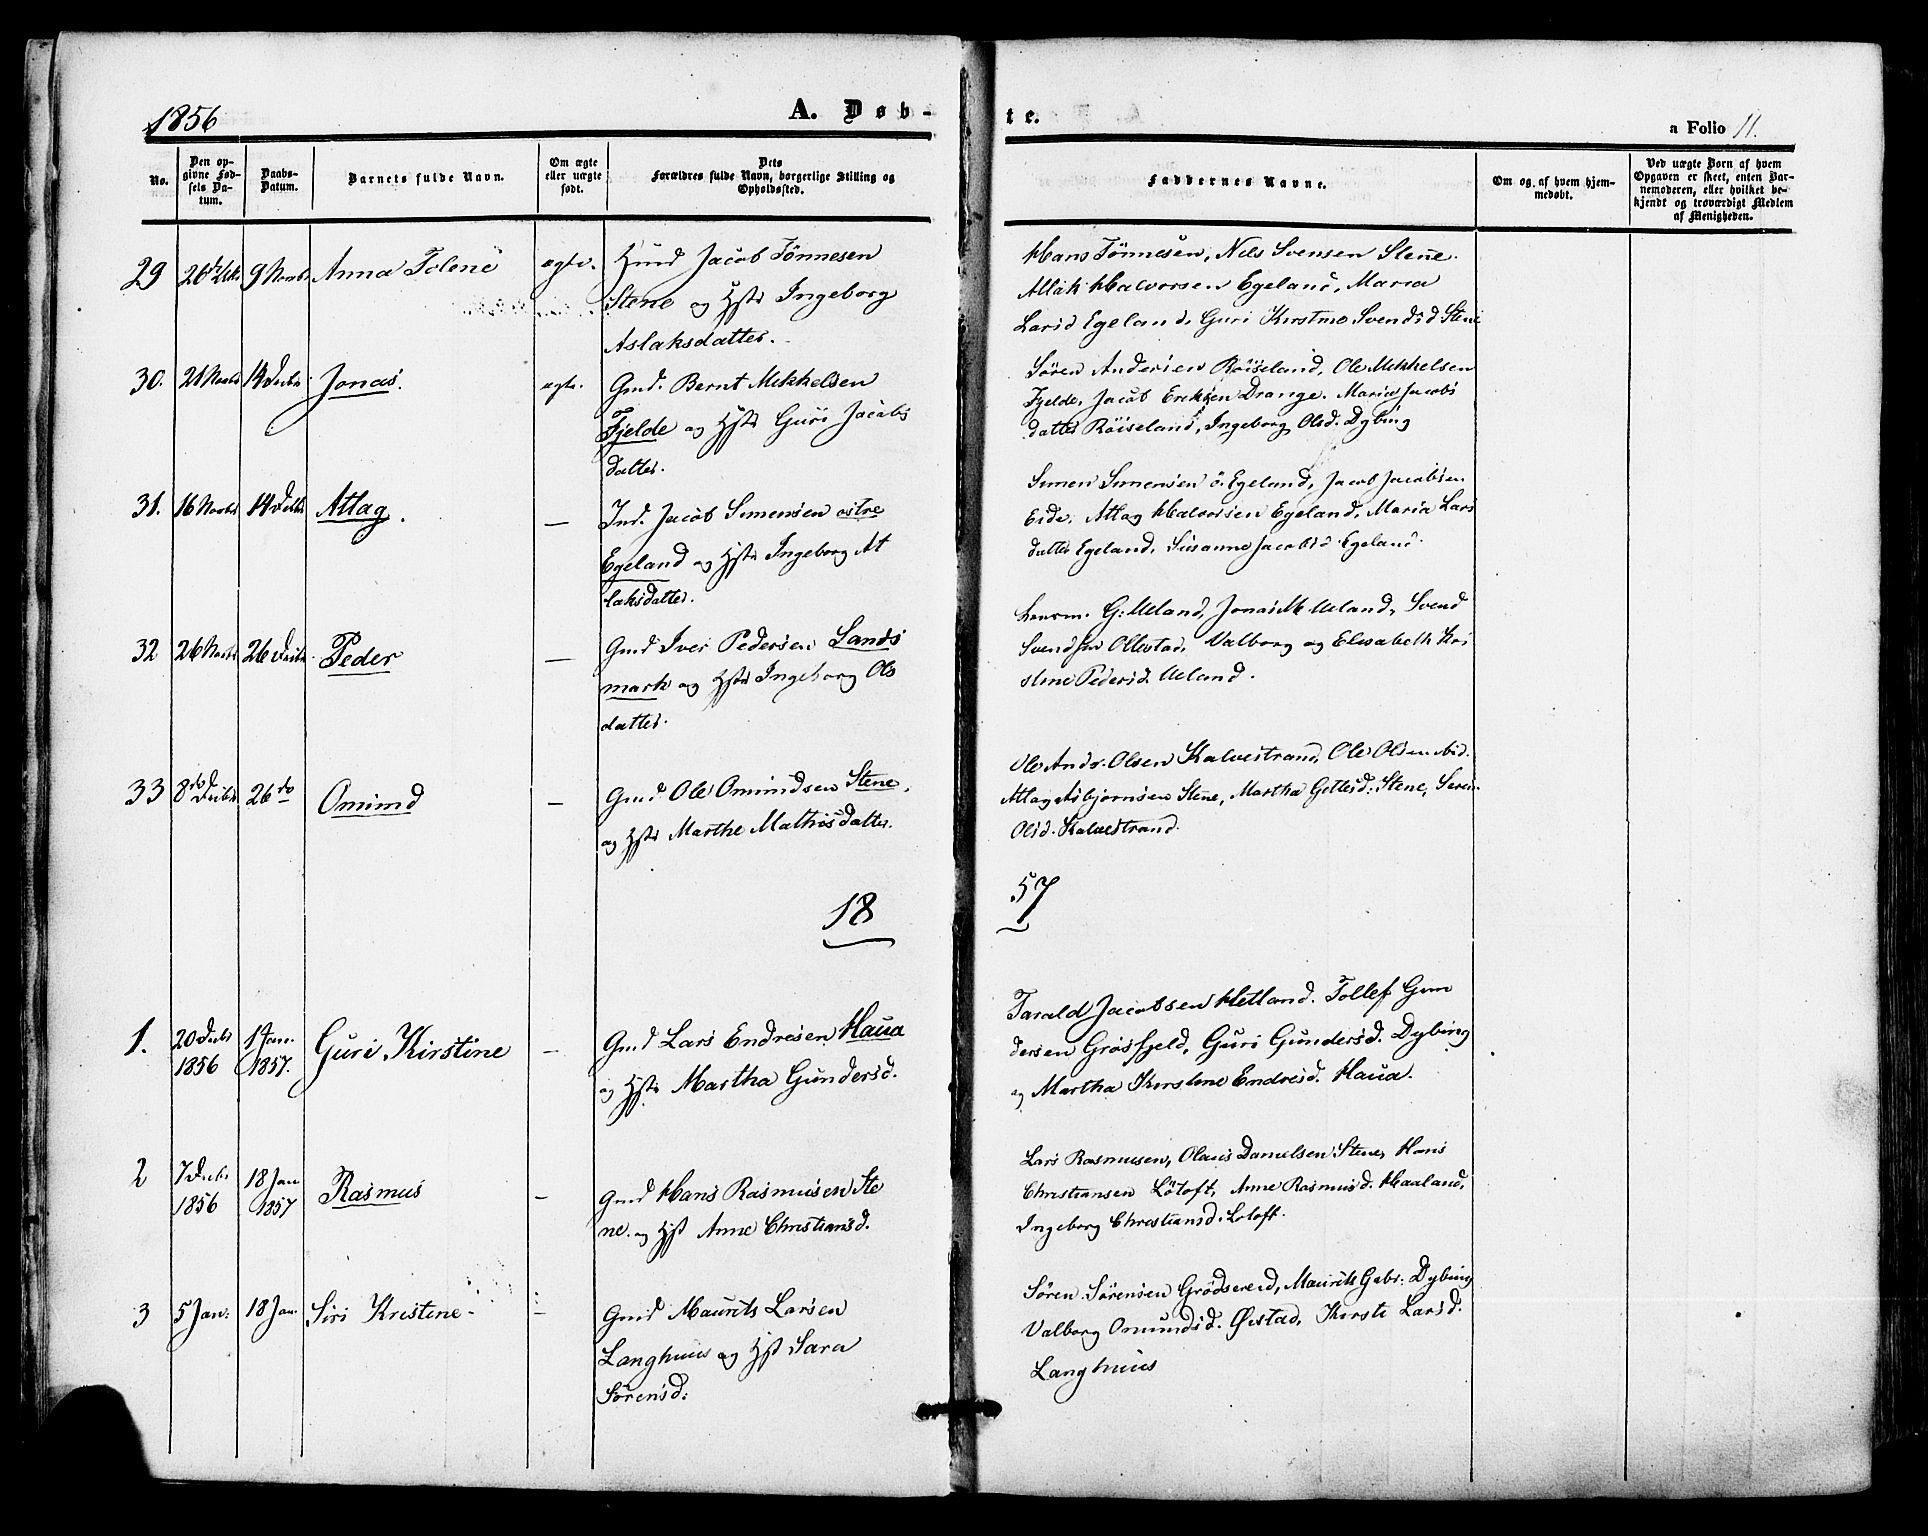 1856
A. Døb-
te.
a Folio 11.
No.
Den op-
givne Fød-
sels Da-
tum.
Daabs-
Datum.
Barnets fulde Navn.
Om ægte
eller uægte
født.
Dets
Forældres fulde Navn, borgerlige Stilling og
Opholdssted.
Faddernes Navne.
Om og af hvem hjem-
medøbt.
Ved uægte Born af hvem
Opgaven er skeet, enten Bar-
nemoderen, eller hvilket be-
kjendt og troværdigt Medlem
af Menigheden.
29
9 Novbr
Anna Tolene
ægte.
Jacob Tönnesen
Stene og Hstr Ingeborg
Aslaksdatter.
Hans Tönnesen, Nils Svensen Stene.
Atlak Halvorsen Egeland, Maria
Larsd Egeland, Guri Kirstine Svendsd Stene
30.
21 Novbr
14 Decbr
Jonas.
ægte.
Gmd. Bernt Mikkelsen
Fjelde og Hstr Guri Jacobs
datter.
Søren Andersen Röiseland, Ole Mikkelsen
Fjelde, Jacob Eriksen Drange. Maria Jacobs
datter Röiseland, Ingeborg Olsd. Dybing
31.
16 Novbr
14 Decbr
Atlag.
—
Ind. Jacob Simensen østre
Egeland og Hstr Ingeborg At
laksdatter.
Simen Simensen ö. Egeland, Jacob Jacobsen
Eide, Atlag Halvorsen Egeland, Maria Lars
datter Egeland, Susanne Jacobsd. Egeland.
32
26 Novbr
26 Decbr.
Peder
—
Gmd Iver Pedersen Lands
mark og Hstr Ingeborg Ols
datter.
Lensm. G. Ueland, Jonas M Ueland, Svend
Svendsen Ollestad, Valborg og Elisabeth Kri
stine Pedersd. Ueland.
33
8de Decbr
26 do
Omund
—
Gmd Ole Omundsen Stene,
og Hstr Marthe Mathisdatter.
Ole Ands. Olsen Kalvestrand, Ole Olsen ibid.
Atlag Asbjørnsen Stene, Martha Gittlesd. Stene, Seri
Olsd. Kalvestrand.
18
57
1.
20 Decbr
1856
1 Jan.
1857.
Guri Kirstine
—
Gmd Lars Endresen Haua
og Hstr Martha Gundersd.
Tarald Jacobsen Hetland. Tollef Gun
dersen Grøsfjeld, Guri Gundersd. Dybing
og Martha Kirstine Endresd. Haua.
2
7 Decbr
1856
18 Jan
1857
Rasmus
—
Gmd Hans Rasmusen Ste
ne. og Hst Anne Christiansd.
Lars Rasmusen, Olaus Danielsen Stene, Hans
Christiansen Lötoft, Anne Rasmusd. Haaland,
Ingeborg Christiansd. Lotoft.
3
5 Jan:
18 Jan.
Siri Kristene
—
Gmd Maurits Larsen
Langhuus og Hst Sara
Sörensd:
Sören Sörensen Grødsereid, Maurits Gabr: Dybing
Valborg Omundsd. Østad, Kirste Larsd.
Langhuus